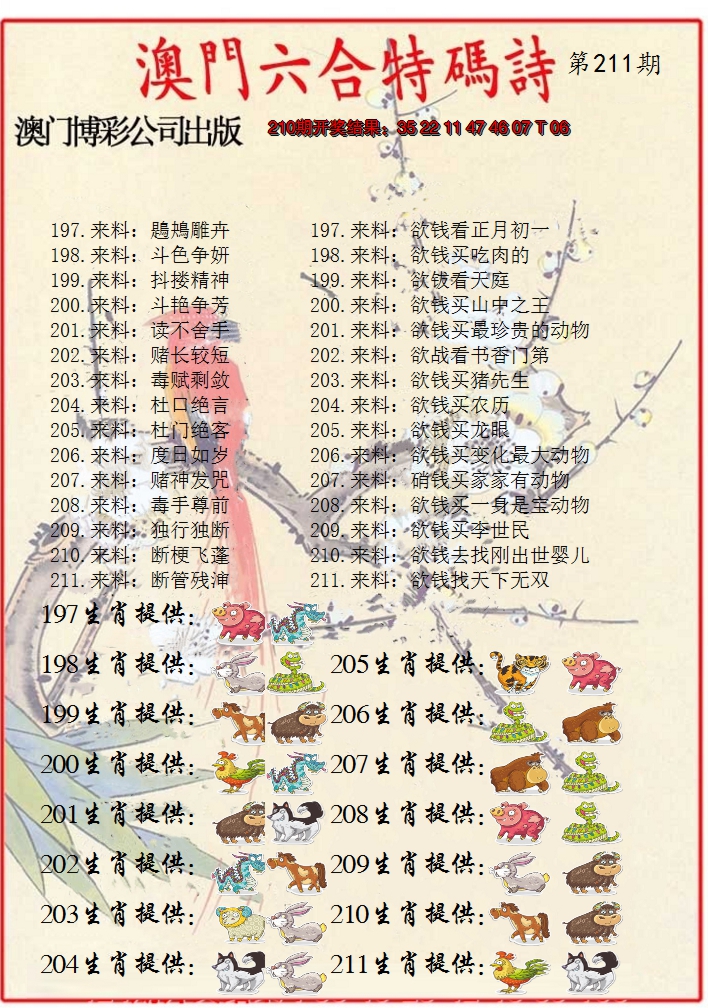 澳門六合特碼詩 第211期
澳门博彩公司出版 210期开奖结果：35 22 11 47 46 07 T 06
197.来料：鵾鴂雕卉 197.来料：欲钱看正月初一
198.来料：斗色争妍 198.来料：欲钱买吃肉的
199.来料：抖搂精神 199.来料：欲钱看天庭
200.来料：斗艳争芳 200.来料：欲钱买山中之王
201.来料：读不舍手 201.来料：欲钱买最珍贵的动物
202.来料：赌长较短 202.来料：欲战看书香门第
203.来料：毒赋剩敛 203.来料：欲钱买猪先生
204.来料：杜口绝言 204.来料：欲钱买农历
205.来料：杜门绝客 205.来料：欲钱买龙眼
206.来料：度日如岁 206.来料：欲钱买变化最大动物
207.来料：赌神发咒 207.来料：硝钱买家家有动物
208.来料：毒手尊前 208.来料：欲钱买一身是宝动物
209.来料：独行独断 209.来料：欲钱买李世民
210.来料：断梗飞蓬 210.来料：欲钱去找刚出世婴儿
211.来料：断管残渖 211.来料：欲钱找天下无双
197生肖提供：
198生肖提供： 205生肖提供：
199生肖提供： 206生肖提供：
200生肖提供： 207生肖提供：
201生肖提供： 208生肖提供：
202生肖提供： 209生肖提供：
203生肖提供： 210生肖提供：
204生肖提供： 211生肖提供：